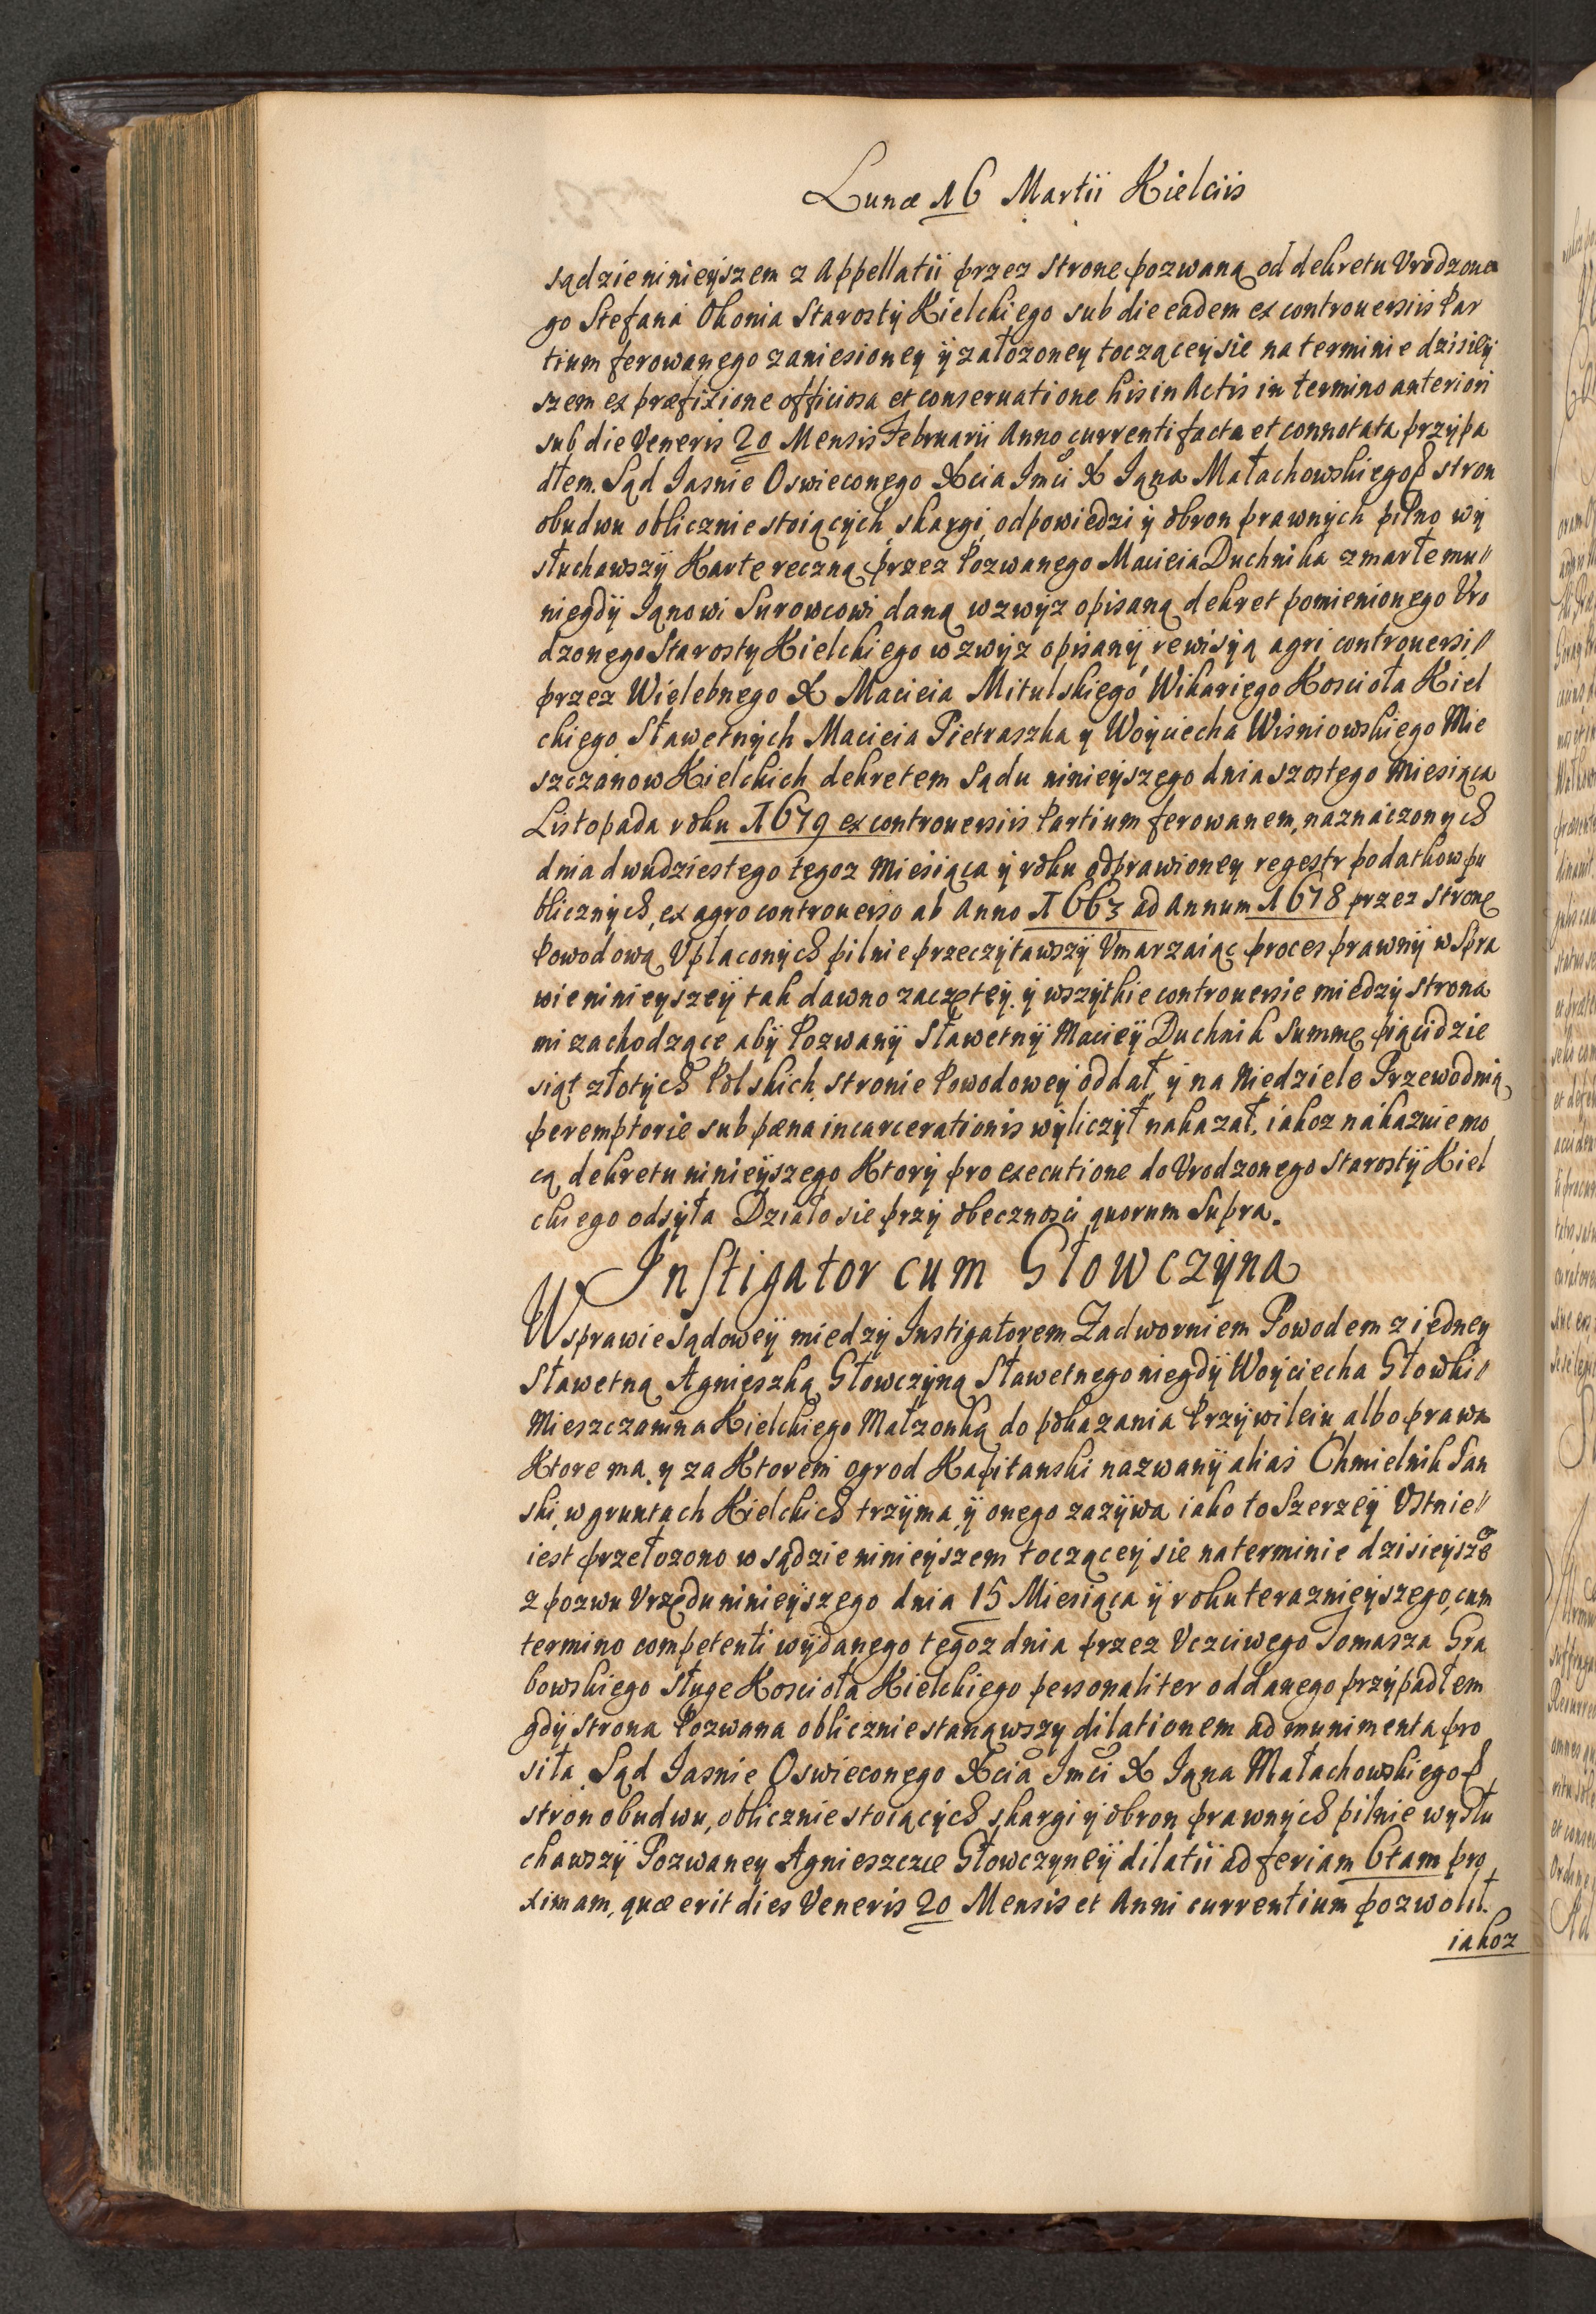 Lunæ 16 Martii Kielciis
sądzie ninieÿszem z Appellatii przez strone pozwaną od dekretu Vrodzone
go Stefana Okonia Starostÿ Kielckiego sub die eadem ex controuersiis Par
tium ferowanego zaniesioneÿ ÿ załozoney tocząceÿ sie na terminie dzisieÿ
szem ex præfixione officiosa et conseruatione his in Actis in termino anteriori
sub die Veneris 20 Mensis Februarii Anno currenti facta et connotata przÿpa
dłem. Sąd Iasnie Oswieconego Xcia Imci X Iana Małachowskiego stron
obudwu oblicznie stoiącÿch, skargi, odpowiedzi ÿ obron prawnÿch pilno wÿ
słuchawszÿ Karte reczną przez Pozwanego Macieia Duchnika zmarłemu//
niegdÿ Ianowi Surowcowi daną wzwÿz opisaną dekret pomienionego Vro
dzonego Starosty Kielckiego wzwÿz opisanÿ, rewisÿą agri controuersi//
przez Wielebnego X Macieia Mitulskiego Wikariego Koscioła Kiel
ckiego Sławetnÿch Macieia Pietraszka y Woÿciecha Wisniowskiego Mie
szczanow Kielckich dekretem Sądu ninieÿszego dnia szostego Miesiąca
Listopada roku 1679 ex controuersiis Partium ferowanem, naznaczonych
dnia dwudziestego tegoz Miesiąca ÿ roku odprawioney regestr podatkow pu
blicznÿch, ex agro controuerso ab Anno 1663 ad Annum 1678 przez strone
Powodową Vpłaconÿch pilnie przeczÿtawszÿ Vmarzaiąc proces prawnÿ w Spra
wie ninieyszeÿ tak dawno zaczęteÿ ÿ wszÿtkie controuersie miedzÿ strona
mi zachodzące abÿ Pozwanÿ Sławetnÿ Macieÿ Duchnik Summe piąćdzie
siąt złotÿch Polskich stronie Powodoweÿ oddał ÿ na Niedziele Przewodnią
peremptorie sub pæna incarcerationis wÿliczÿł nakazał, iakoz nakazuie mo
cą dekretu ninieÿszego Ktorÿ pro executione do Vrodzonego Starostÿ Kiel
ckiego odsyła Działo sie przÿ obecznosci quorum Supra.
Instigator cum Głowczÿna
W sprawie sądoweÿ miedzÿ Instigatorem Zadworniem Powodem z iedney
Sławetną Agnieszką Głowczÿną Sławetnego niegdÿ Woÿciecha Głowki//
Mieszczanina Kielckiego Małzonką do pokazania Przÿwileiu albo prawa
Ktore ma y za Ktorem ogrod Kapitanski nazwanÿ alias Chmielnik Pan
ski, w gruntach Kielckich trzÿma ÿ onego zazÿwa iako to Szerzeÿ Vstnie//
iest przełozono w sądzie ninieÿszem toczącey sie na terminie dzisieÿsze
z pozwu Vrzędu ninieÿszego dnia 15 Miesiąca ÿ roku teraznieÿszego, cum
termino competenti wÿdanego tegoz dnia przez Vczciwego Tomasza Gra
bowskiego sługe Koscioła Kielckiego personaliter oddanego przÿpadłem
gdÿ strona Pozwana oblicznie stanąwszy dilationem ad munimenta pro
siła Sąd Iasnie Oswieconego Xcia Imci X Iana Małachowskiego
stron obudwu, oblicznie stoiącÿch skargi ÿ obron prawnÿch pilnie wysłu
chawszÿ Pozwaney Agnieszcze Głowczyneÿ dilatii ad feriam 6tam pro
ximam, quæ erit dies Veneris 20 Mensis et Anni currentium pozwolił.
iakoz